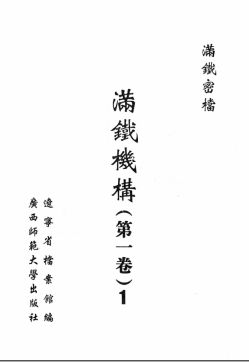 滿鐵密檔
滿鐵機構(第一卷)1
遼寧省檔案館編
廣西師範大學出版社